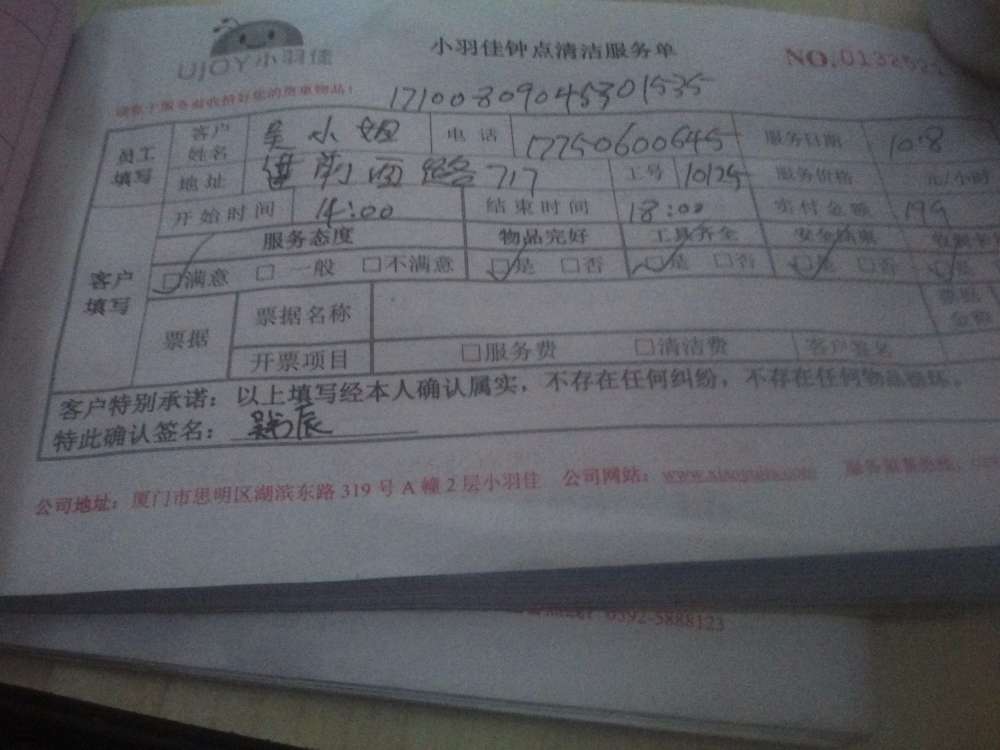 UJOY小羽佳
小羽佳钟点清洁服务单
NO.013252
请您于服务前收拾好您的贵重物品!
17100809045301535
员工填写 客户姓名 吴小姐 电话 17750600645 服务日期 10.8
地址 莲前西路717 工号 10125 服务价格 元/小时
客户填写 开始时间 14:00 结束时间 18:00 实付金额 199
服务态度 物品完好 工具齐全 安全结束
□满意 □一般 □不满意 □是 □否 □是 □否 □是 □否 □是
票据 票据名称 票据金额
开票项目 □服务费 □清洁费 客户签名
客户特别承诺：以上填写经本人确认属实，不存在任何纠纷，不存在任何物品损坏。
特此确认签名：
公司地址：厦门市思明区湖滨东路 319 号 A 幢 2 层小羽佳 公司网站：www.xiaoyujia.com 服务监督热线：
0592-5888123